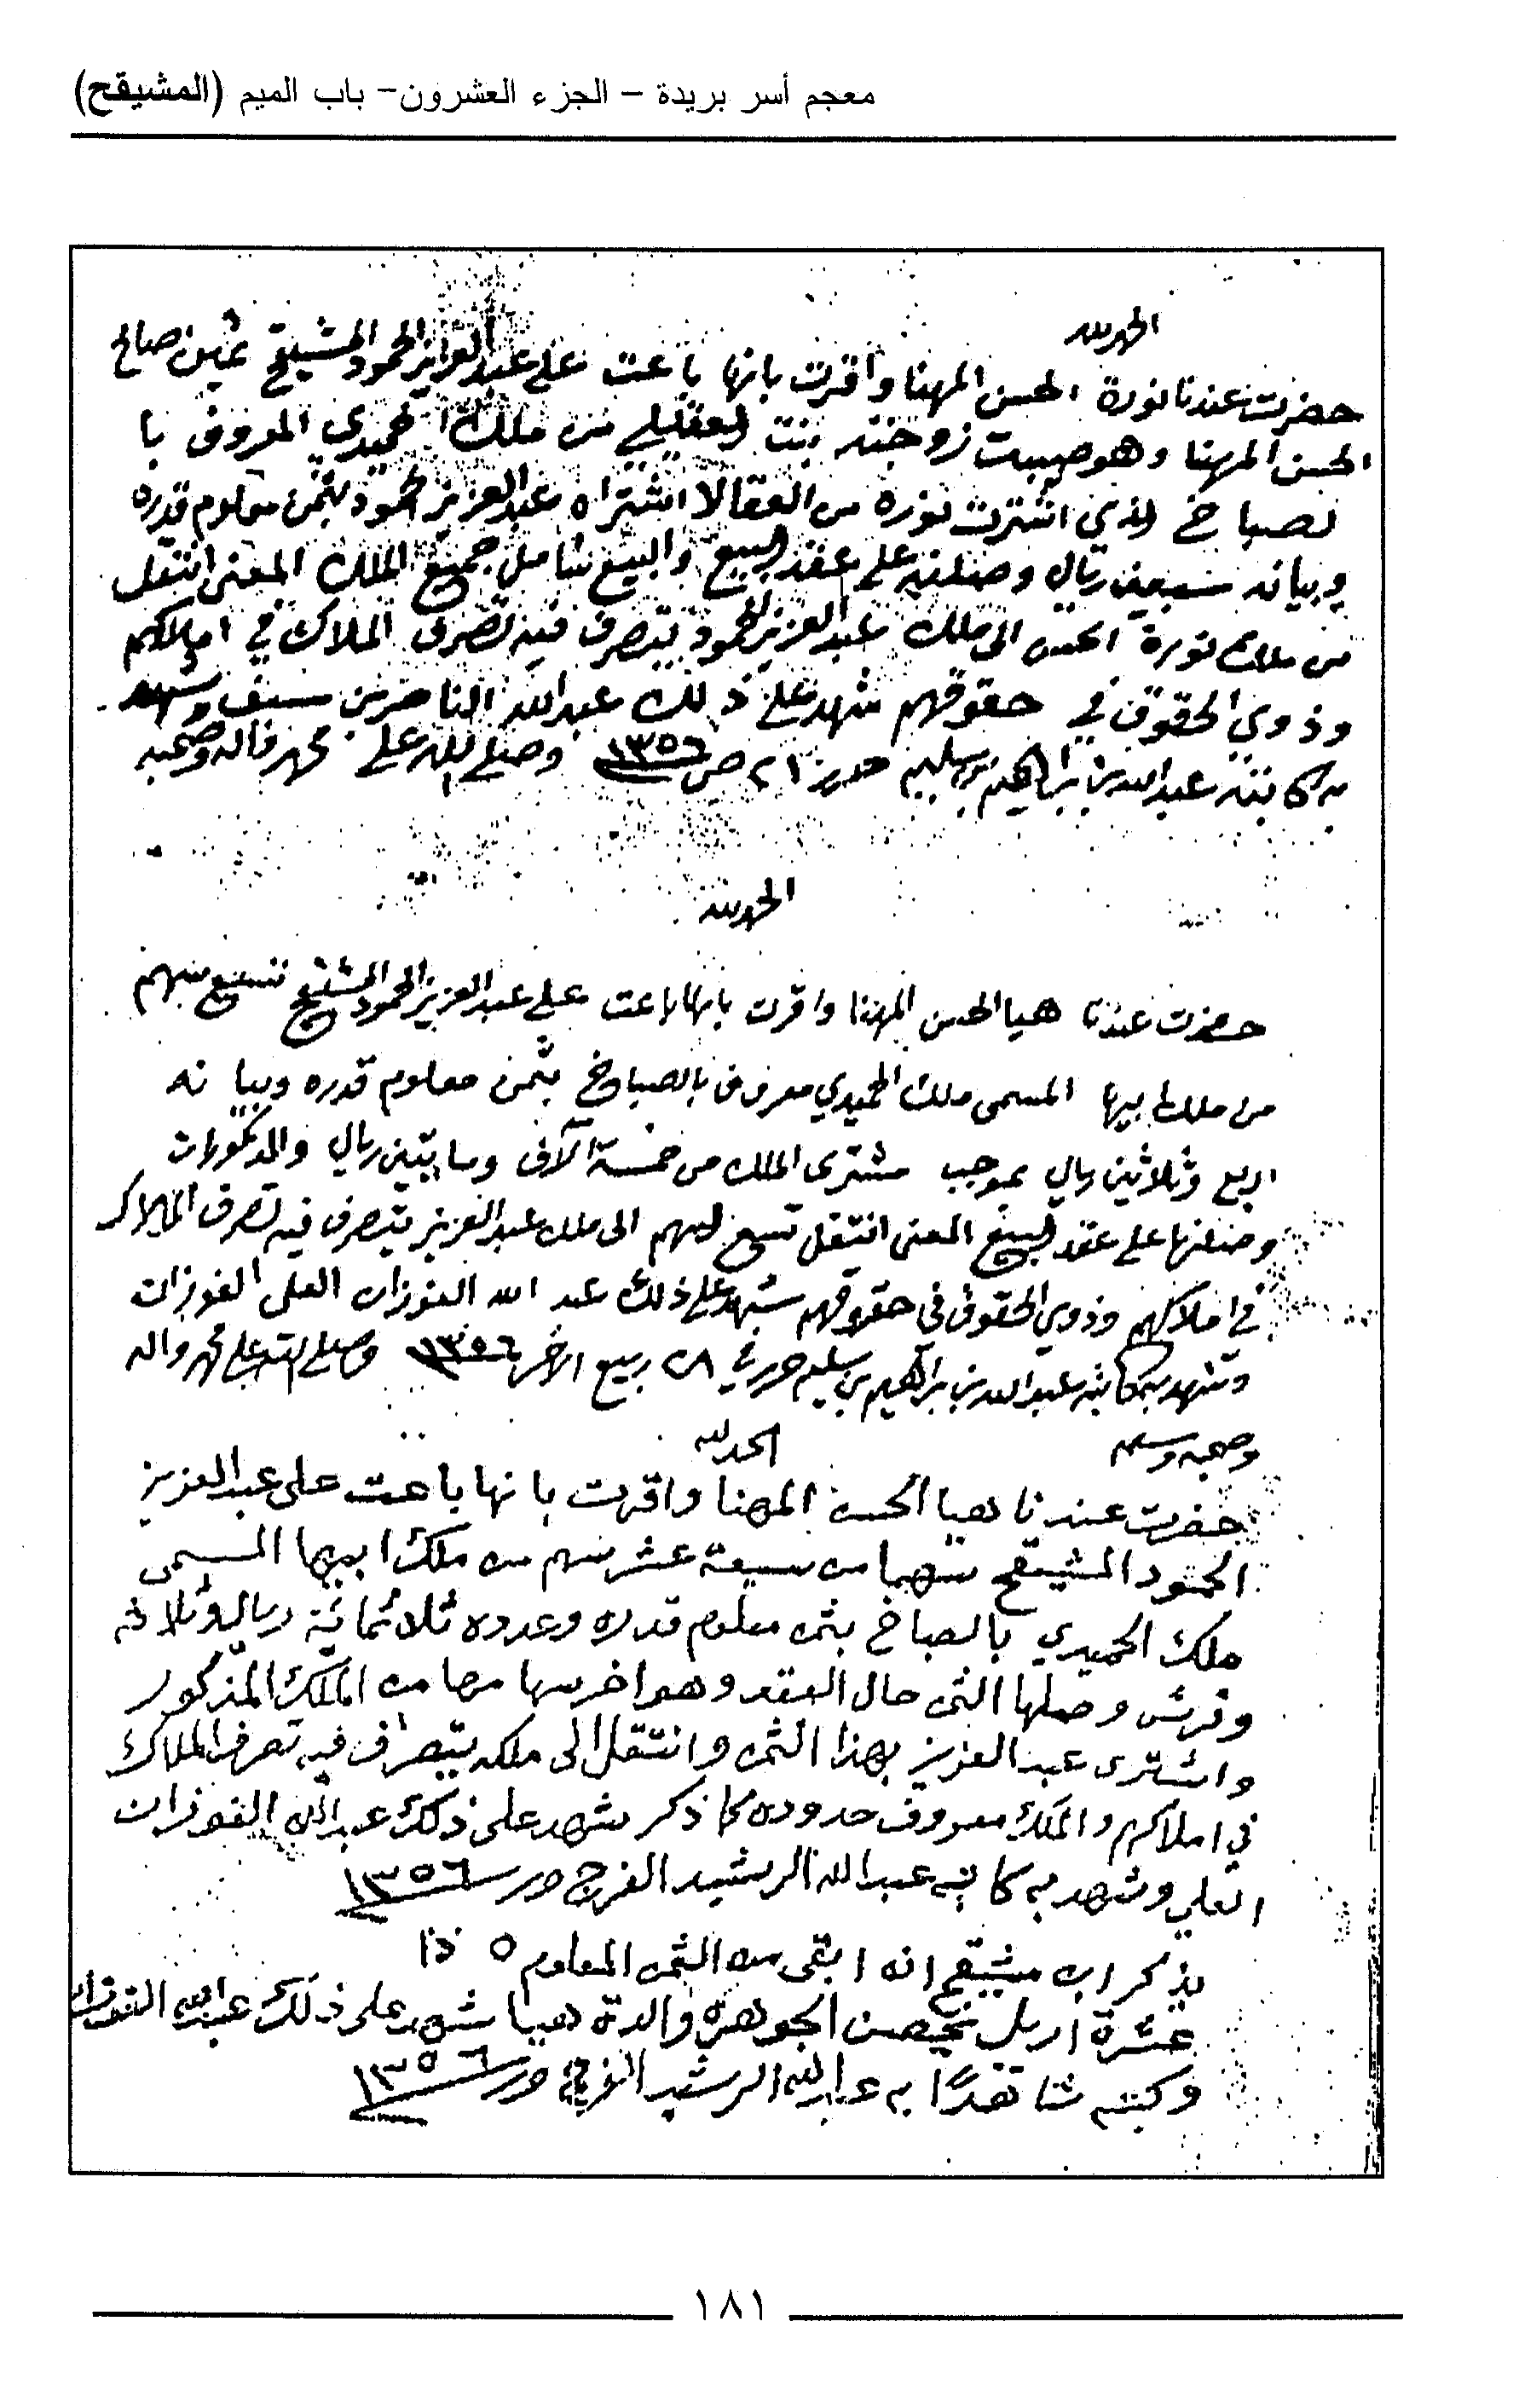 معجم أسر بريدة – الجزء العشرون– باب الميم (المشيقح)
الحمد لله
حضرت عندنا نورة الحسن المهنا واقرت بانها باعت على عبدالعزيز الحمود المشيقح ثمين صالح
الحسن المهنا وهو صيبت زوجته بنت العقيلي من ملك الحميدي المعروف با
لصباخ الذي اشترت نوره من العقالا اشتراه عبدالعزيز الحمود بثمن معلوم قدره
وبيانه سبعين ريال وصلنه على عقد البيع والبيع شامل جميع الملك المعني انتقل
من ملك نورة الحسن الى ملك عبدالعزيز الحمود يتصرف فيه تصرف الملاك في املاكهم
وذوي الحقوق في حقوقهم شهد على ذلك عبدالله الناصر بن سيف وشهد
به كاتبه عبدالله بن ابراهيم بن سليم حرر ٢١ ص ١٣٥٦ وصلى الله على محمد واله وصحبه
الحمد لله
حضرت عندنا هيا الحسن المهنا واقرت بانها باعت على عبدالعزيز الحمود المشيقح تسع سهم
من ملك ابيها المسمى ملك الحميدي معروف بالصباخ بثمن معلوم قدره وبيانه
اربع وثلاثين ريال بموجب مشترى الملك من خمسة آلاف ومايتين ريال والمذكورات
وصلنها على عقد البيع المعني انتقل تسع السهم الى ملك عبدالعزيز يتصرف فيه تصرف الملاك
في املاكهم وذوي الحقوق في حقوقهم شهد على ذلك عبد الله الفوزان العلي الفوزان
وشهد به كاتبه عبدالله بن ابراهيم بن سليم حرر في ٢٨ ربيع الاخر ١٣٥٦ وصلى الله على محمد واله
وصحبه وسلم
الحمد لله
حضرت عندنا هيا الحسن المهنا واقرت بانها باعت على عبدالعزيز
الحمود المشيقح سهما من سبعة عشر سهم من ملك ابيها المسمى
ملك الحميدي بالصباخ بثمن معلوم قدره وعدده ثلاثمائة ريال وثلاثه
وقرش وصلها الثمن حال العقد وهو اخر سهامها من الملك المذكور
واشترى عبدالعزيز بهذا الثمن وانتقل الى ملكه يتصرف فيه تصرف الملاك
في املاكهم والملك معروف حدوده كما ذكر شهد على ذلك عبدالله الفوزان
العلي وشهد به كاتبه عبدالله الرشيد الفرج حرر ١٣٥٦
يذكر ابن مشيقح انه ابقى من الثمن المعلوم
عشرة اريل يخصن الجوهرة والدة هيا شهد على ذلك عبدالله الفوزان
وكتبه شاهدًا به عبدالله الرشيد الفرج حرر ١٣٥٦
١٨١